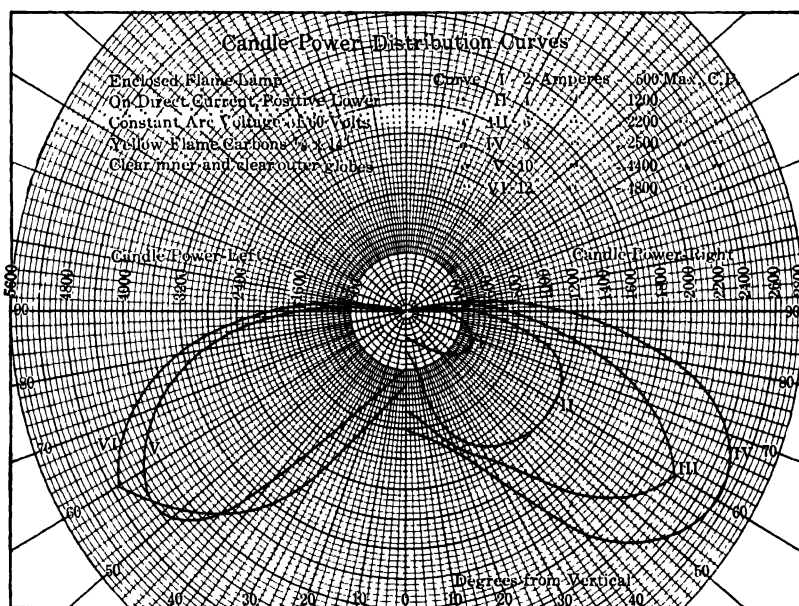 Candle Power Distribution Curves
Enclosed Flame Lamp
On Direct Current Positive Lower
Constant Arc Voltage of 60 Volts
Yellow Flame Carbons
Clear inner and clear outer globes
Curve I - 2 Amperes - 500 Max. C.P.
" II - 4 " 1200 " "
" III - 6 " 2200 " "
" IV - 8 " 2500 " "
" V - 10 " - 4400 " "
" VI - 12 " - 4800 " "
Candle Power Left
Candle Power Right
5600 4800 4000 3200 2400
1200 1400 1600 1800 2000 2200 2400 2600 2800
90 90
80 80
70 70
60 60
50 50
VI V
II
III
IV
Degrees from Vertical
40 30 20 10 0 10 20 30 40